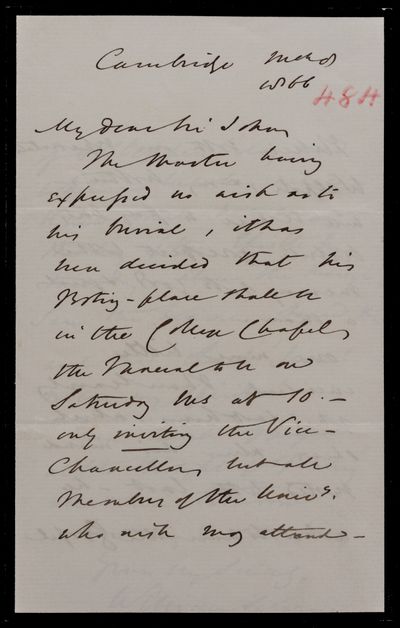 Cambridge March 8
1866
484
My dear Sir John
The Master having
expressed no wish as to
his burial, it has
been decided that his
Resting-place shall be
in the College Chapel,
the Funeral to be on
Saturday at 10. —
only inviting the Vice-
Chancellor, but all
Members of the Univy.
who wish may attend —